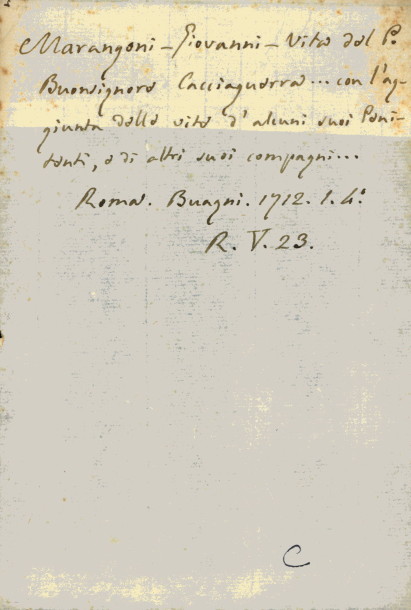 Marangoni - Giovanni - Vita del P.
Buonsignore Cacciaguerra... con l'ag-
giunta della vita d'alcuni suoi Peni-
tenti, e di altri suoi compagni...
Roma. Buagni. 1712. 1. 4º
R. V. 23.
C